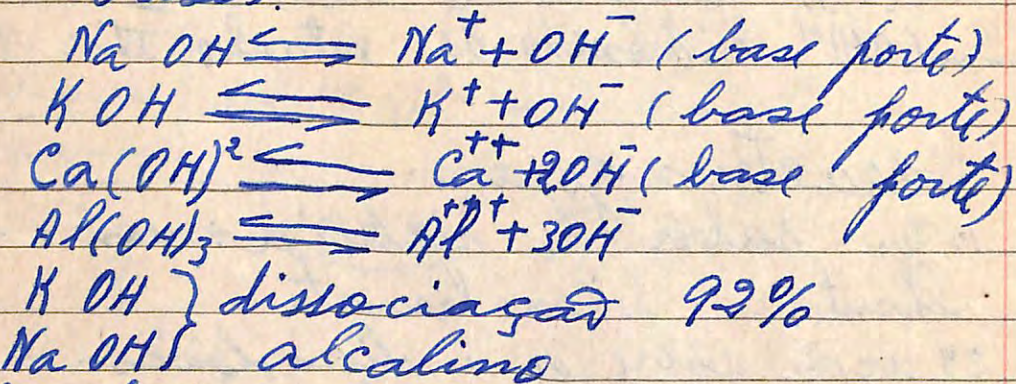 Na OH ⇌ Na⁺ + OH⁻ (base forte)
K OH ⇌ K⁺ + OH⁻ (base forte)
Ca(OH)² ⇌ Ca⁺⁺ + 2OH⁻ (base forte)
Al(OH)₃ ⇌ Al⁺⁺⁺ + 3OH⁻
K OH } dissociação 92%
Na OH } alcalino